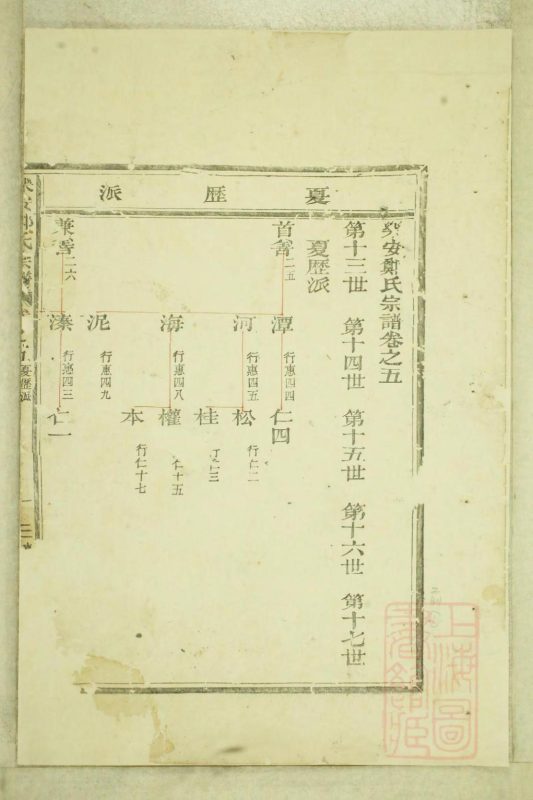 夏歷派
安鄭氏宗譜卷之五
第十三世 第十四世 第十五世 第十六世 第十七世
夏歷派
首 二五
潭 行惠四四
仁四
河 行惠四五
松 行仁二
桂
海 行惠四八
權 仁十五
本 行仁十七
泥 行惠四九
兼 二六
溱 行惠四三
仁一
夏歷派
上海圖